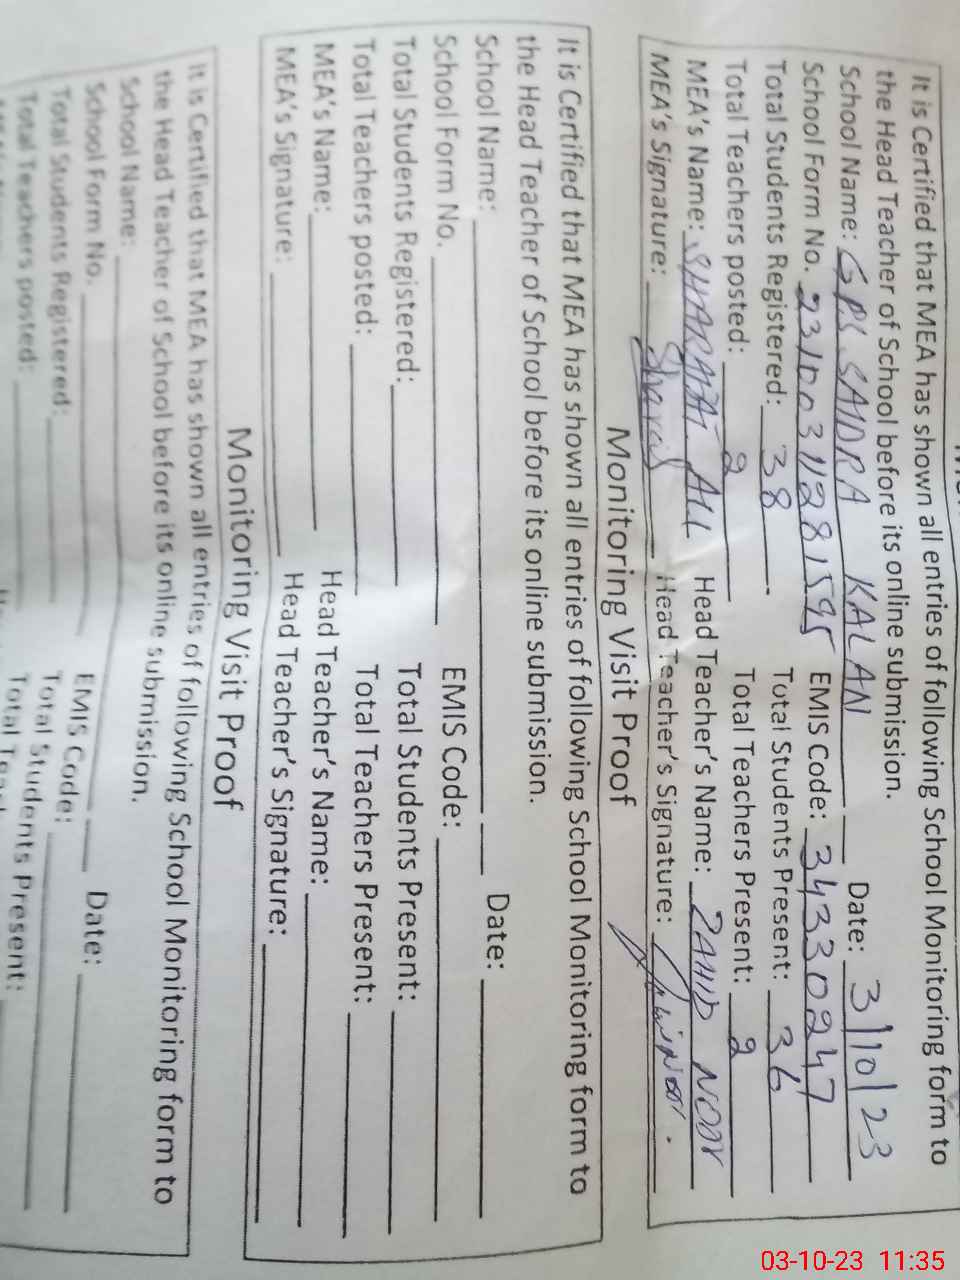 It is Certified that MEA has shown all entries of following School Monitoring form to
the Head Teacher of School before its online submission.
School Name: GPS SAIDRA KALAN Date: 3/10/23
School Form No. 23100311281595 EMIS Code: 34330247
Total Students Registered: 38 Total Students Present: 36
Total Teachers posted: 2 Total Teachers Present: 2
MEA's Name: SHARAFAT ALI Head Teacher's Name: ZAHID NOOR
MEA's Signature: Head Teacher's Signature:
Monitoring Visit Proof
It is Certified that MEA has shown all entries of following School Monitoring form to
the Head Teacher of School before its online submission.
School Name: Date:
School Form No. EMIS Code:
Total Students Registered: Total Students Present:
Total Teachers posted: Total Teachers Present:
MEA's Name: Head Teacher's Name:
MEA's Signature: Head Teacher's Signature:
Monitoring Visit Proof
It is Certified that MEA has shown all entries of following School Monitoring form to
the Head Teacher of School before its online submission.
School Name: Date:
School Form No. EMIS Code:
Total Students Registered: Total Students Present:
Total Teachers posted: Total
03-10-23 11:35